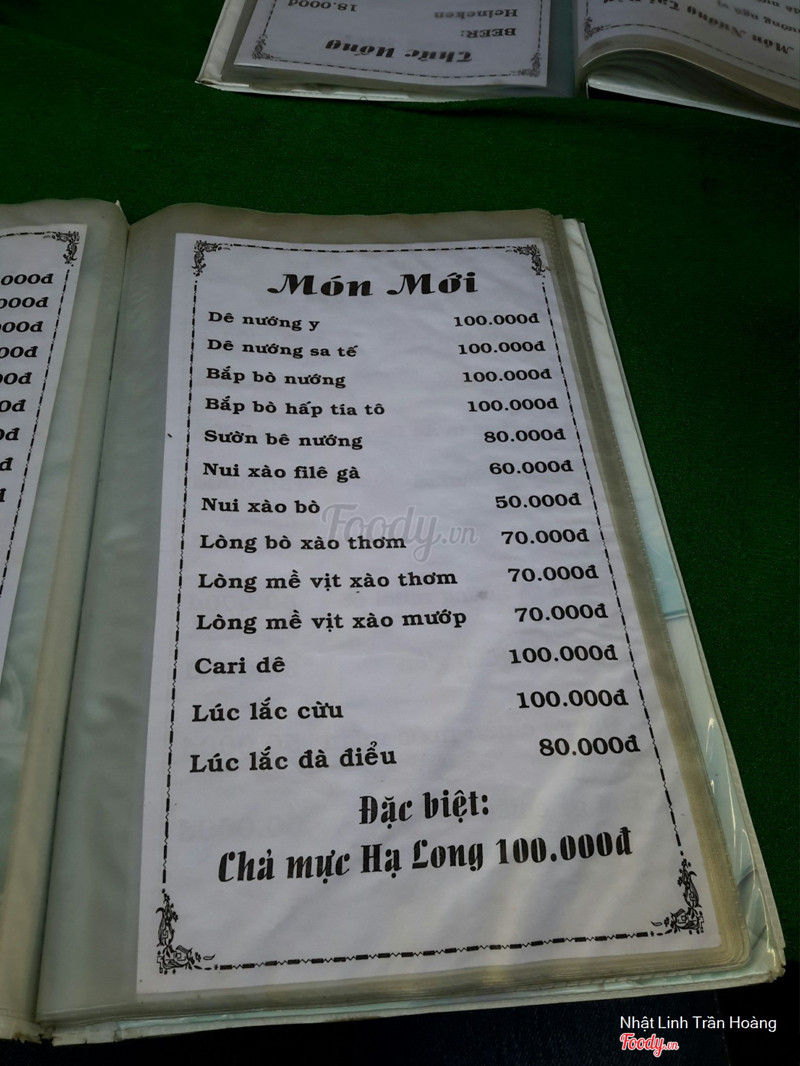 Thức Uống
BEER:
Heineken
18.000đ
Món Nướng
Món Mới
Dê nướng y 100.000đ
Dê nướng sa tế 100.000đ
Bắp bò nướng 100.000đ
Bắp bò hấp tía tô 100.000đ
Sườn bê nướng 80.000đ
Nui xào filê gà 60.000đ
Nui xào bò 50.000đ
Lòng bò xào thơm 70.000đ
Lòng mề vịt xào thơm 70.000đ
Lòng mề vịt xào mướp 70.000đ
Cari dê 100.000đ
Lúc lắc cừu 100.000đ
Lúc lắc đà điểu 80.000đ
Đặc biệt:
Chả mực Hạ Long 100.000đ
Foody.vn
Nhật Linh Trần Hoàng
Foody.vn